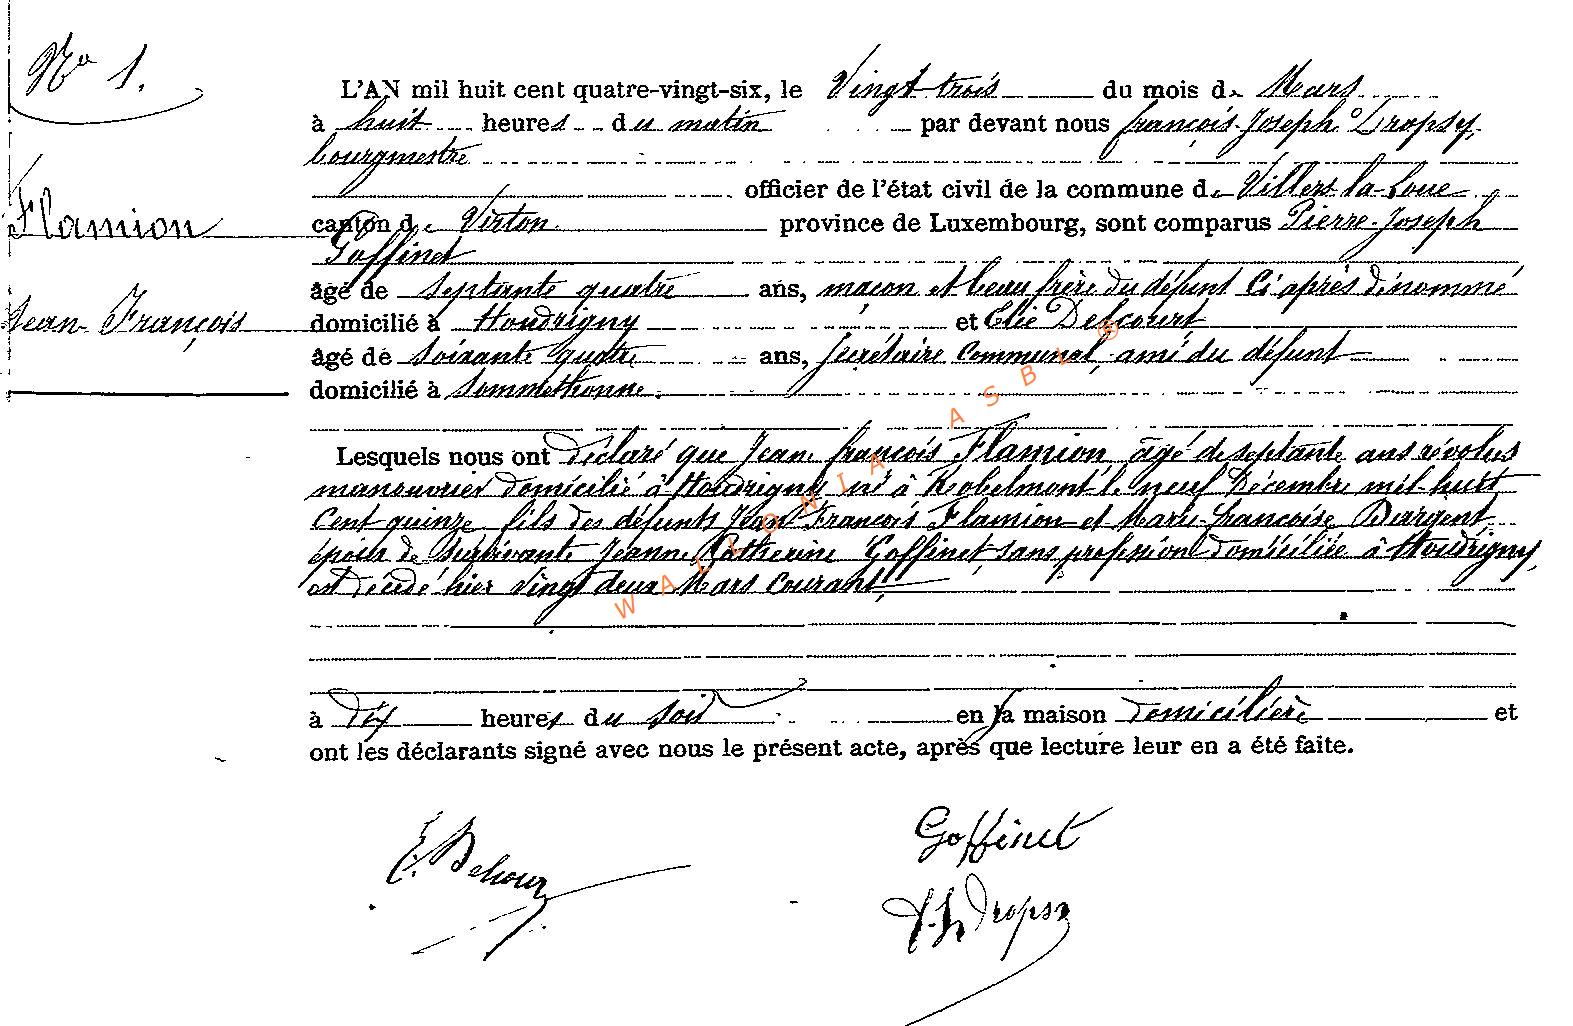 No 1.
L'AN mil huit cent quatre-vingt-six, le Vingt trois du mois de Mars
à huit heures du matin par devant nous françois-Joseph Dropsy,
bourgmestre
officier de l'état civil de la commune de Villers-la-Loue
Flamion
canton de Virton province de Luxembourg, sont comparus Pierre-Joseph
Goffinet
âgé de septante quatre ans, maçon et beau frère du défunt ci après dénommé
Jean-François
domicilié à Houdrigny et Elie
âgé de soixante quatre ans, secrétaire communal, ami du défunt
domicilié à Sommethonne.
Lesquels nous ont déclaré que Jean françois Flamion, âgé de septante ans révolus
manouvrier domicilié à Houdrigny, né à Robelmont le neuf Décembre mil huit
cent quinze, fils des défunts Jean François Flamion et Marie-françoise Dargent,
époux de survivante Jeanne Catherine Goffinet, sans profession domiciliée à Houdrigny,
est décédé hier vingt deux Mars courant,
WALLONIA ASBL ®
à dix heures du soir en sa maison domicilière et
ont les déclarants signé avec nous le présent acte, après que lecture leur en a été faite.
Goffinet
Dropsy